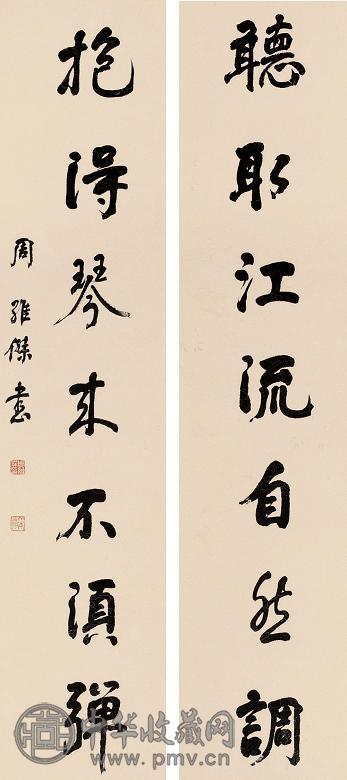 聽取江流自然調
抱得琴来不須彈
周維傑書
中华收藏网
www.pmv.cn